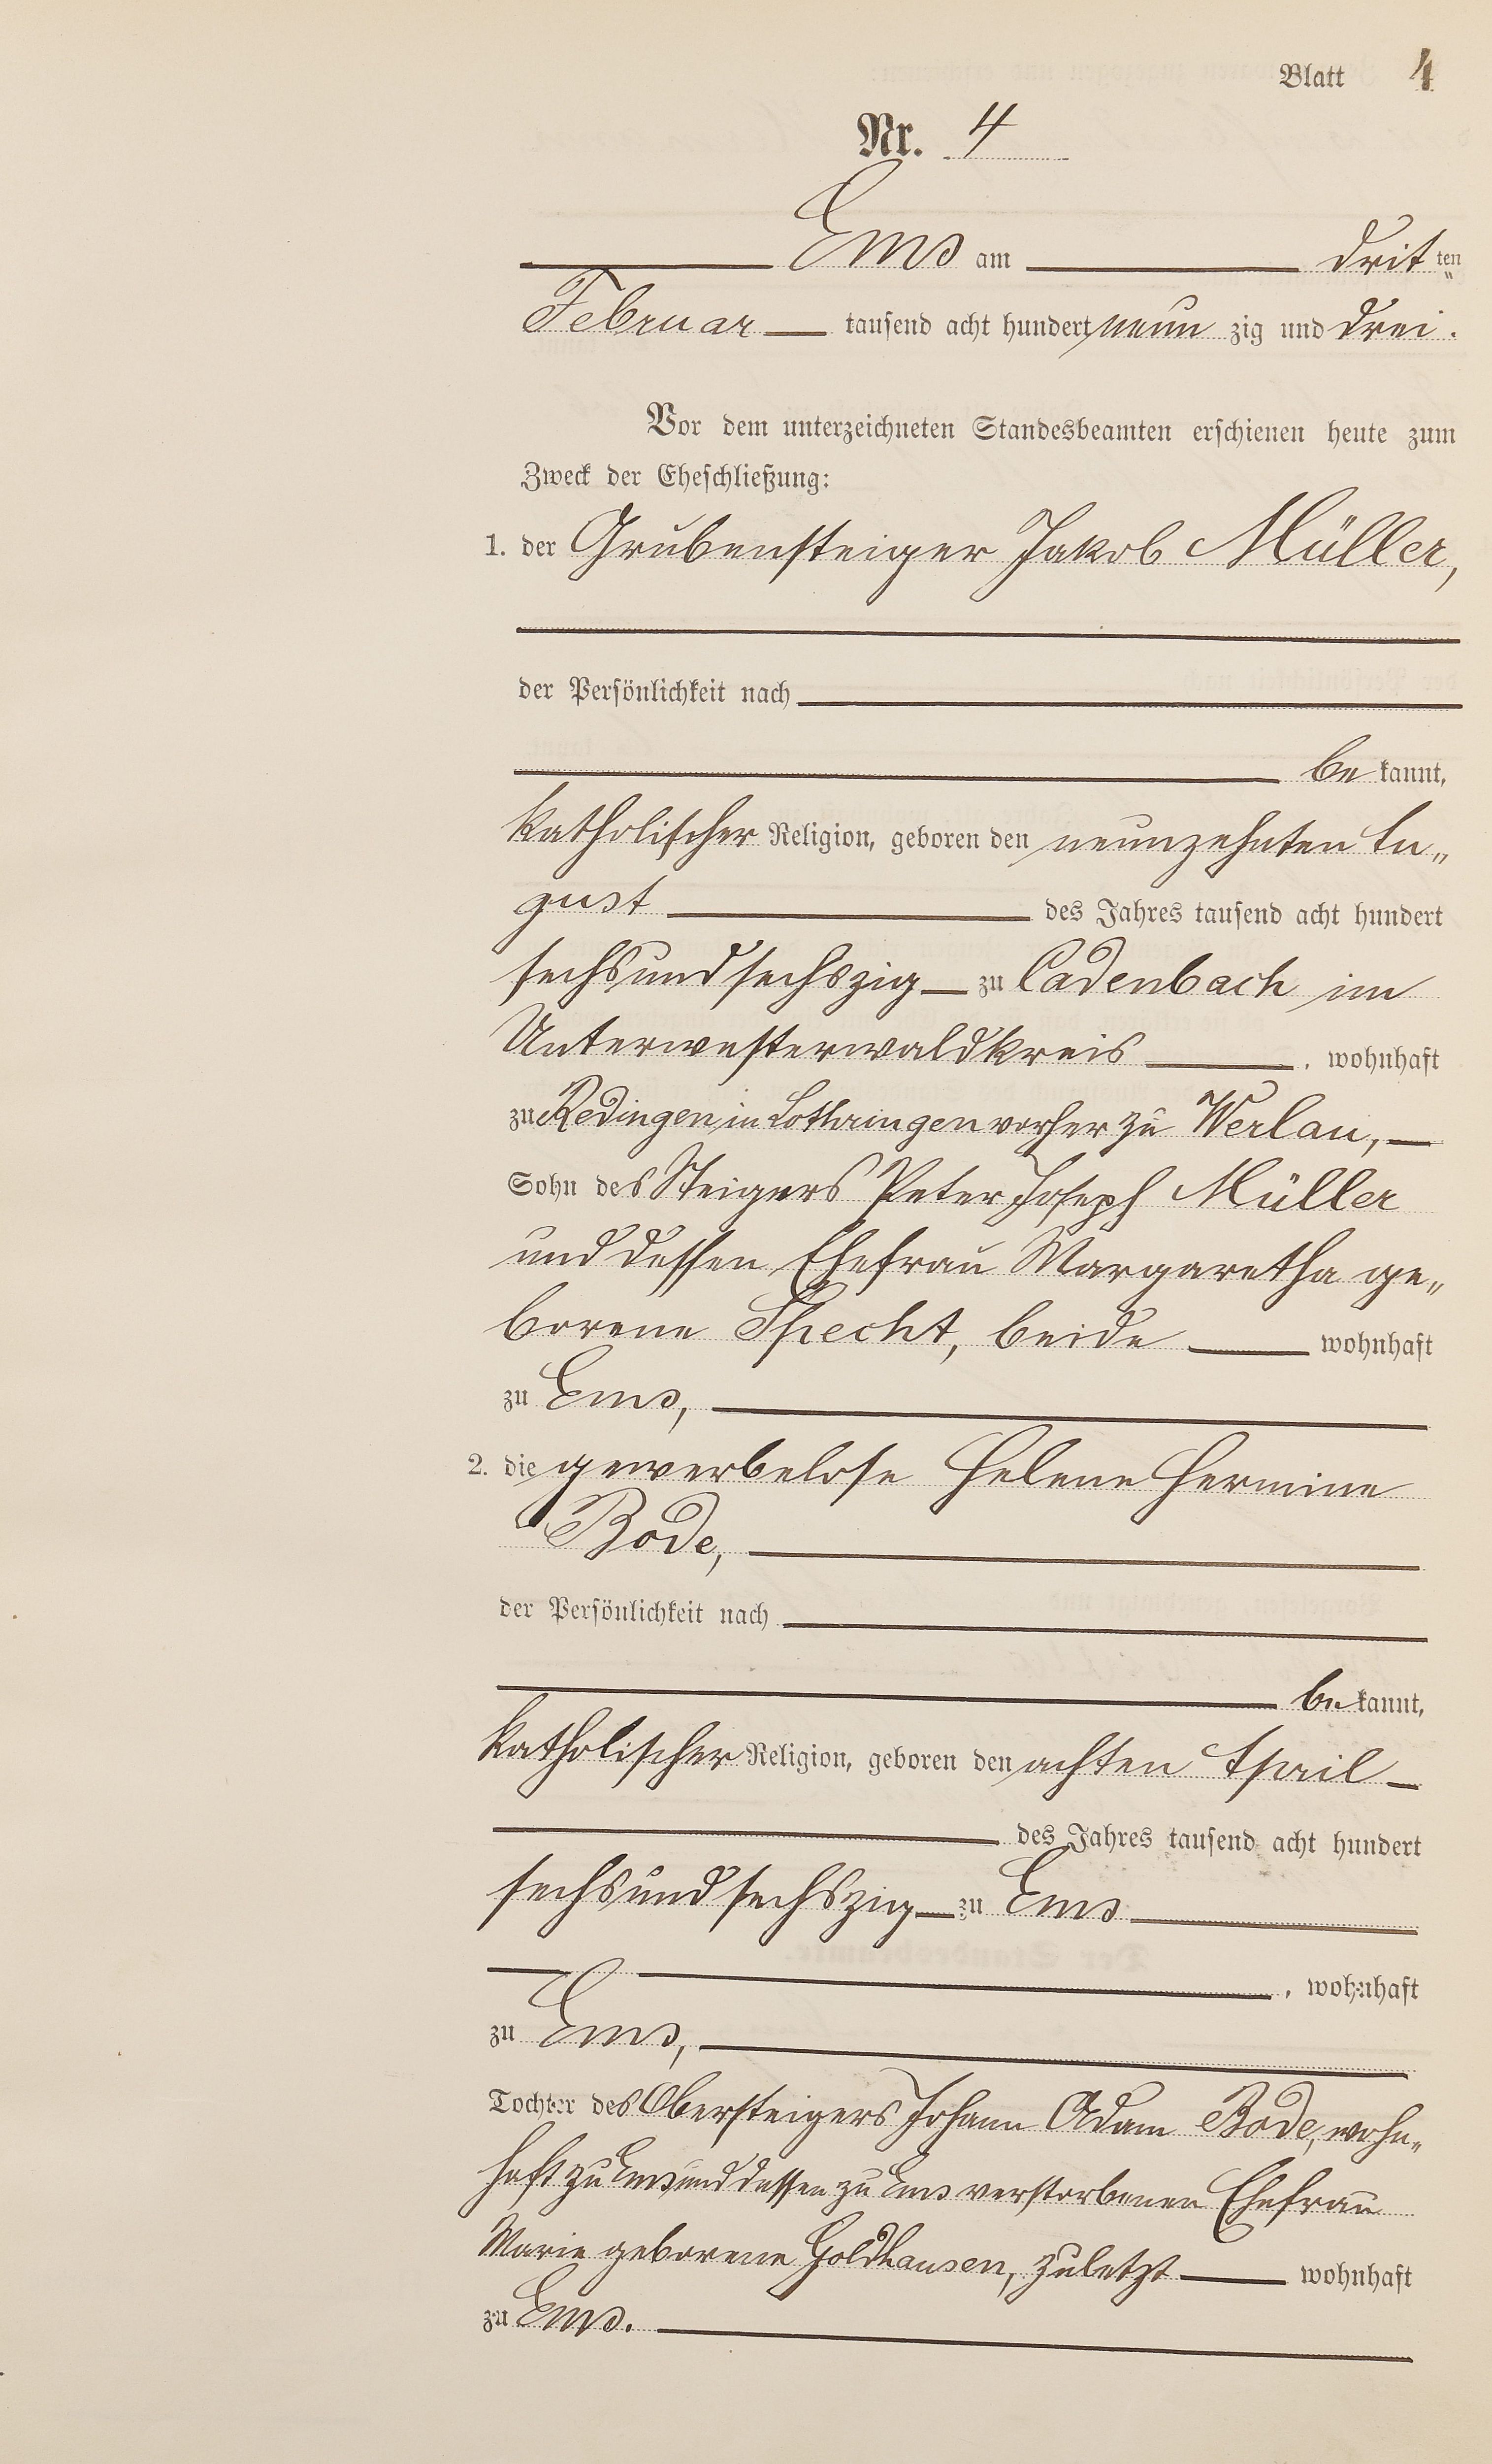 Blatt 4
Nr. 4
Ems am dritten
Februar tausend acht hundert neunzig und drei.
Vor dem unterzeichneten Standesbeamten erschienen heute zum
Zweck der Eheschließung:
1. der Grubensteiger Jakob Müller,
der Persönlichkeit nach
bekannt,
katholischer Religion, geboren den neunzehnten Au„
gust des Jahres tausend acht hundert
sechsundsechszig zu Cadenbach im
Unterwesterwaldkreis, wohnhaft
zu Redingen in Lothringen vorher zu Werlau,
Sohn des Steigers Peter Joseph Müller
und dessen Ehefrau Margaretha ge„
borene Specht, beide wohnhaft
zu Ems,
2. die gewerbelose Helene Hermine
Bode,
der Persönlichkeit nach
bekannt,
katholischer Religion, geboren den achten April
des Jahres tausend acht hundert
sechsundsechszig zu Ems
, wohnhaft
zu Ems,
Tochter des Obersteigers Johann Adam Bode, wohn„
haft zu Ems und dessen zu Ems verstorbenen Ehefrau
Marie geborene Goldhausen, zuletzt wohnhaft
zu Ems.